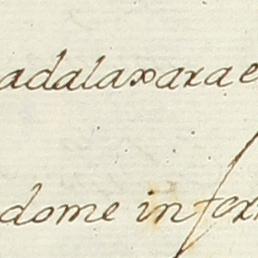 adalaxara e
dome infor